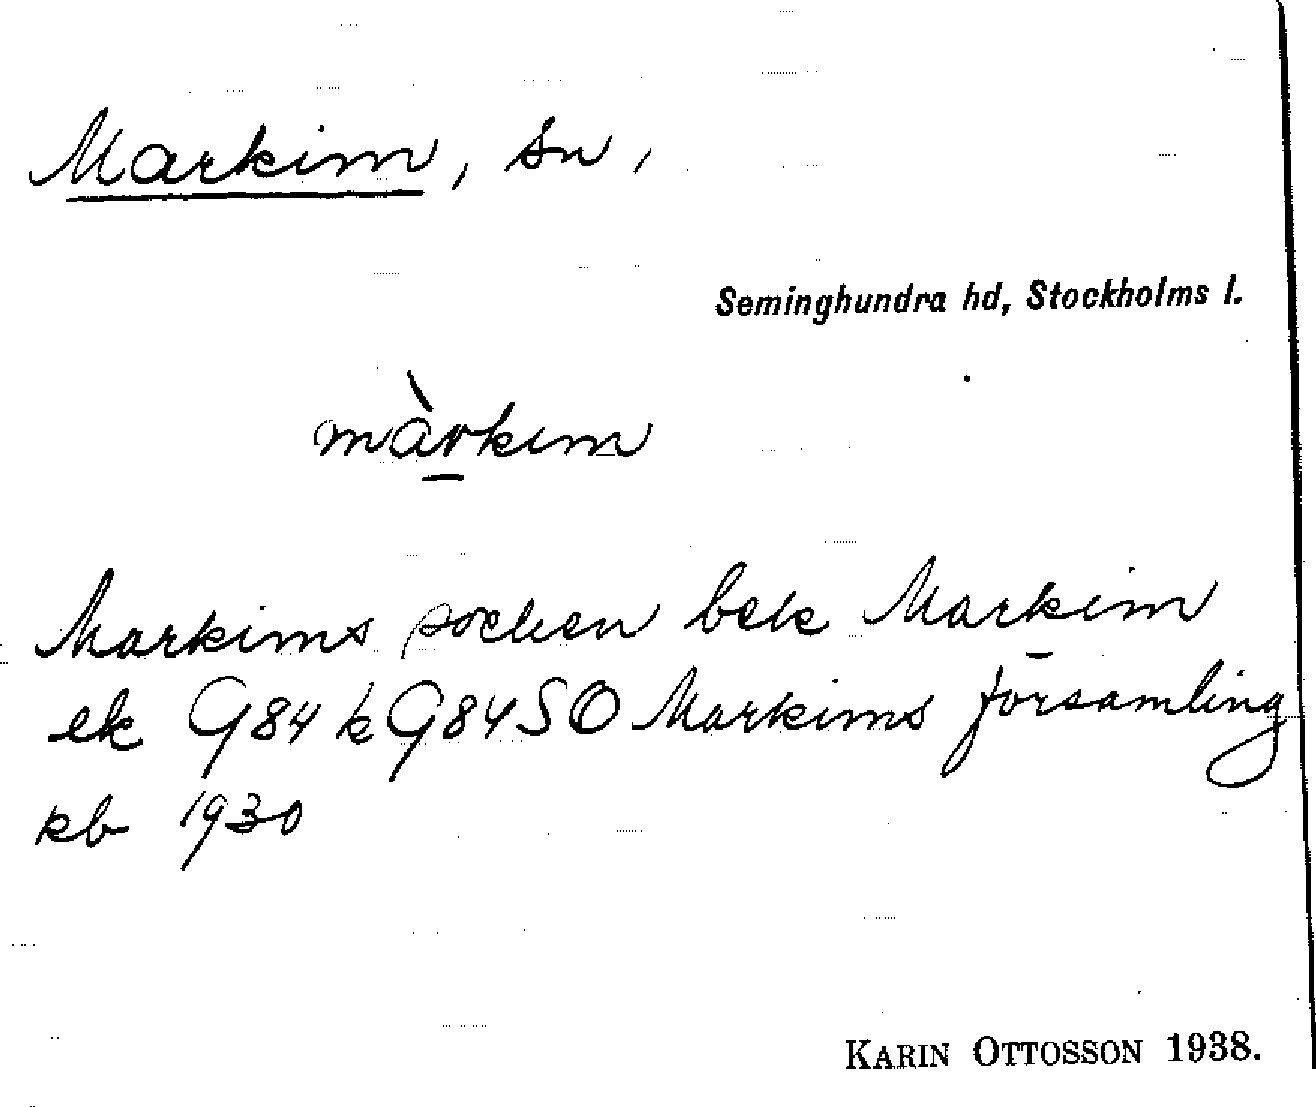 Markim, sn,
Seminghundra hd, Stockholms l.
màrkım
Markims socken bek Markim
ek G84 k G84SO Markims församling
kb 1930
KARIN OTTOSSON 1938.